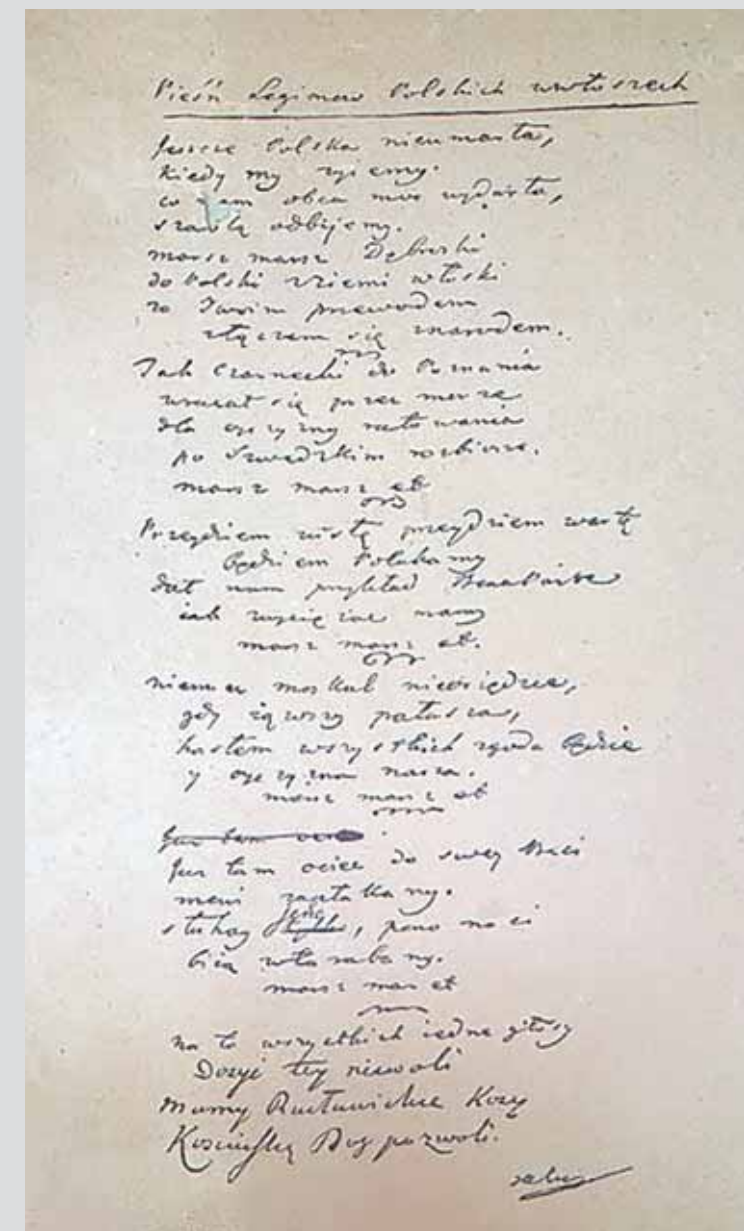 Pieśń Legionow Polskich wewłoszech
Jeszcze Polska nieumarła,
kiedy my zyiemy.
co nam obca moc wydarła,
szablą odbijemy.
marsz marsz Dąbroski
do Polski zziemi włoski
za Twoim przewodem
złączem się znarodem.
Jak Czarnecki do Poznania
wracał się przez morze
dla oyczyzny ratowania
po Szwedzkim rozbiorze.
marsz marsz et
Przeydziem wisłę przeydziem wartę
będziem Polakamy
dał nam przykład Bonaparte
iak zwyciężac mamy
marsz marsz et.
niemiec moskal nieosiędzie,
gdy iąwszy pałasza,
hasłem wszystkich zgoda będzie
y oyczyzna nasza.
marsz marsz et
Jusz tam ociec
Jusz tam ociec do swey Basi
mówi zapłakany.
słuhay ieno, pono nasi
biią wtarabany.
marsz mar et
na to wszystkich iedne głosy
Dosyć tey niewoli
Mamy Racławickie Kosy
Kosciuszkę Bog pozwoli.